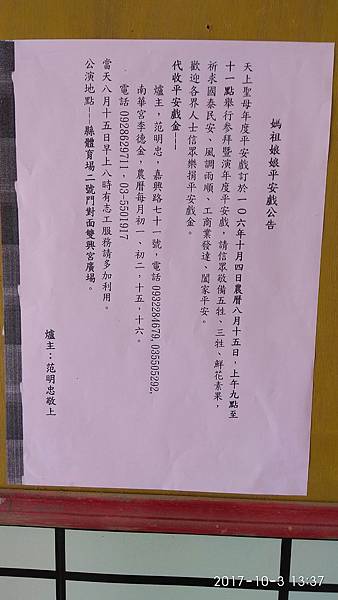 媽祖娘娘平安戲公告
天上聖母年度平安戲訂於一０六年十月四日農曆八月十五日，上午九點至
十一點舉行參拜暨演年度平安戲，請信眾敬備五牲、三牲、鮮花素果，
祈求國泰民安、風調雨順、工商業發達、闔家平安。
歡迎各界人士信眾樂捐平安戲金。
代收平安戲金──
爐主，范明忠，嘉興路七十一號，電話 0932284679, 035505292,
南華宮李德金，農曆每月初一、初二，十五，十六。
電話 0928629711，03-5501917
當天八月十五日早上八時有志工服務請多加利用。
公演地點──縣體育場二號門對面雙興宮廣場。
爐主：范明忠敬上
2017-10-3 13:37